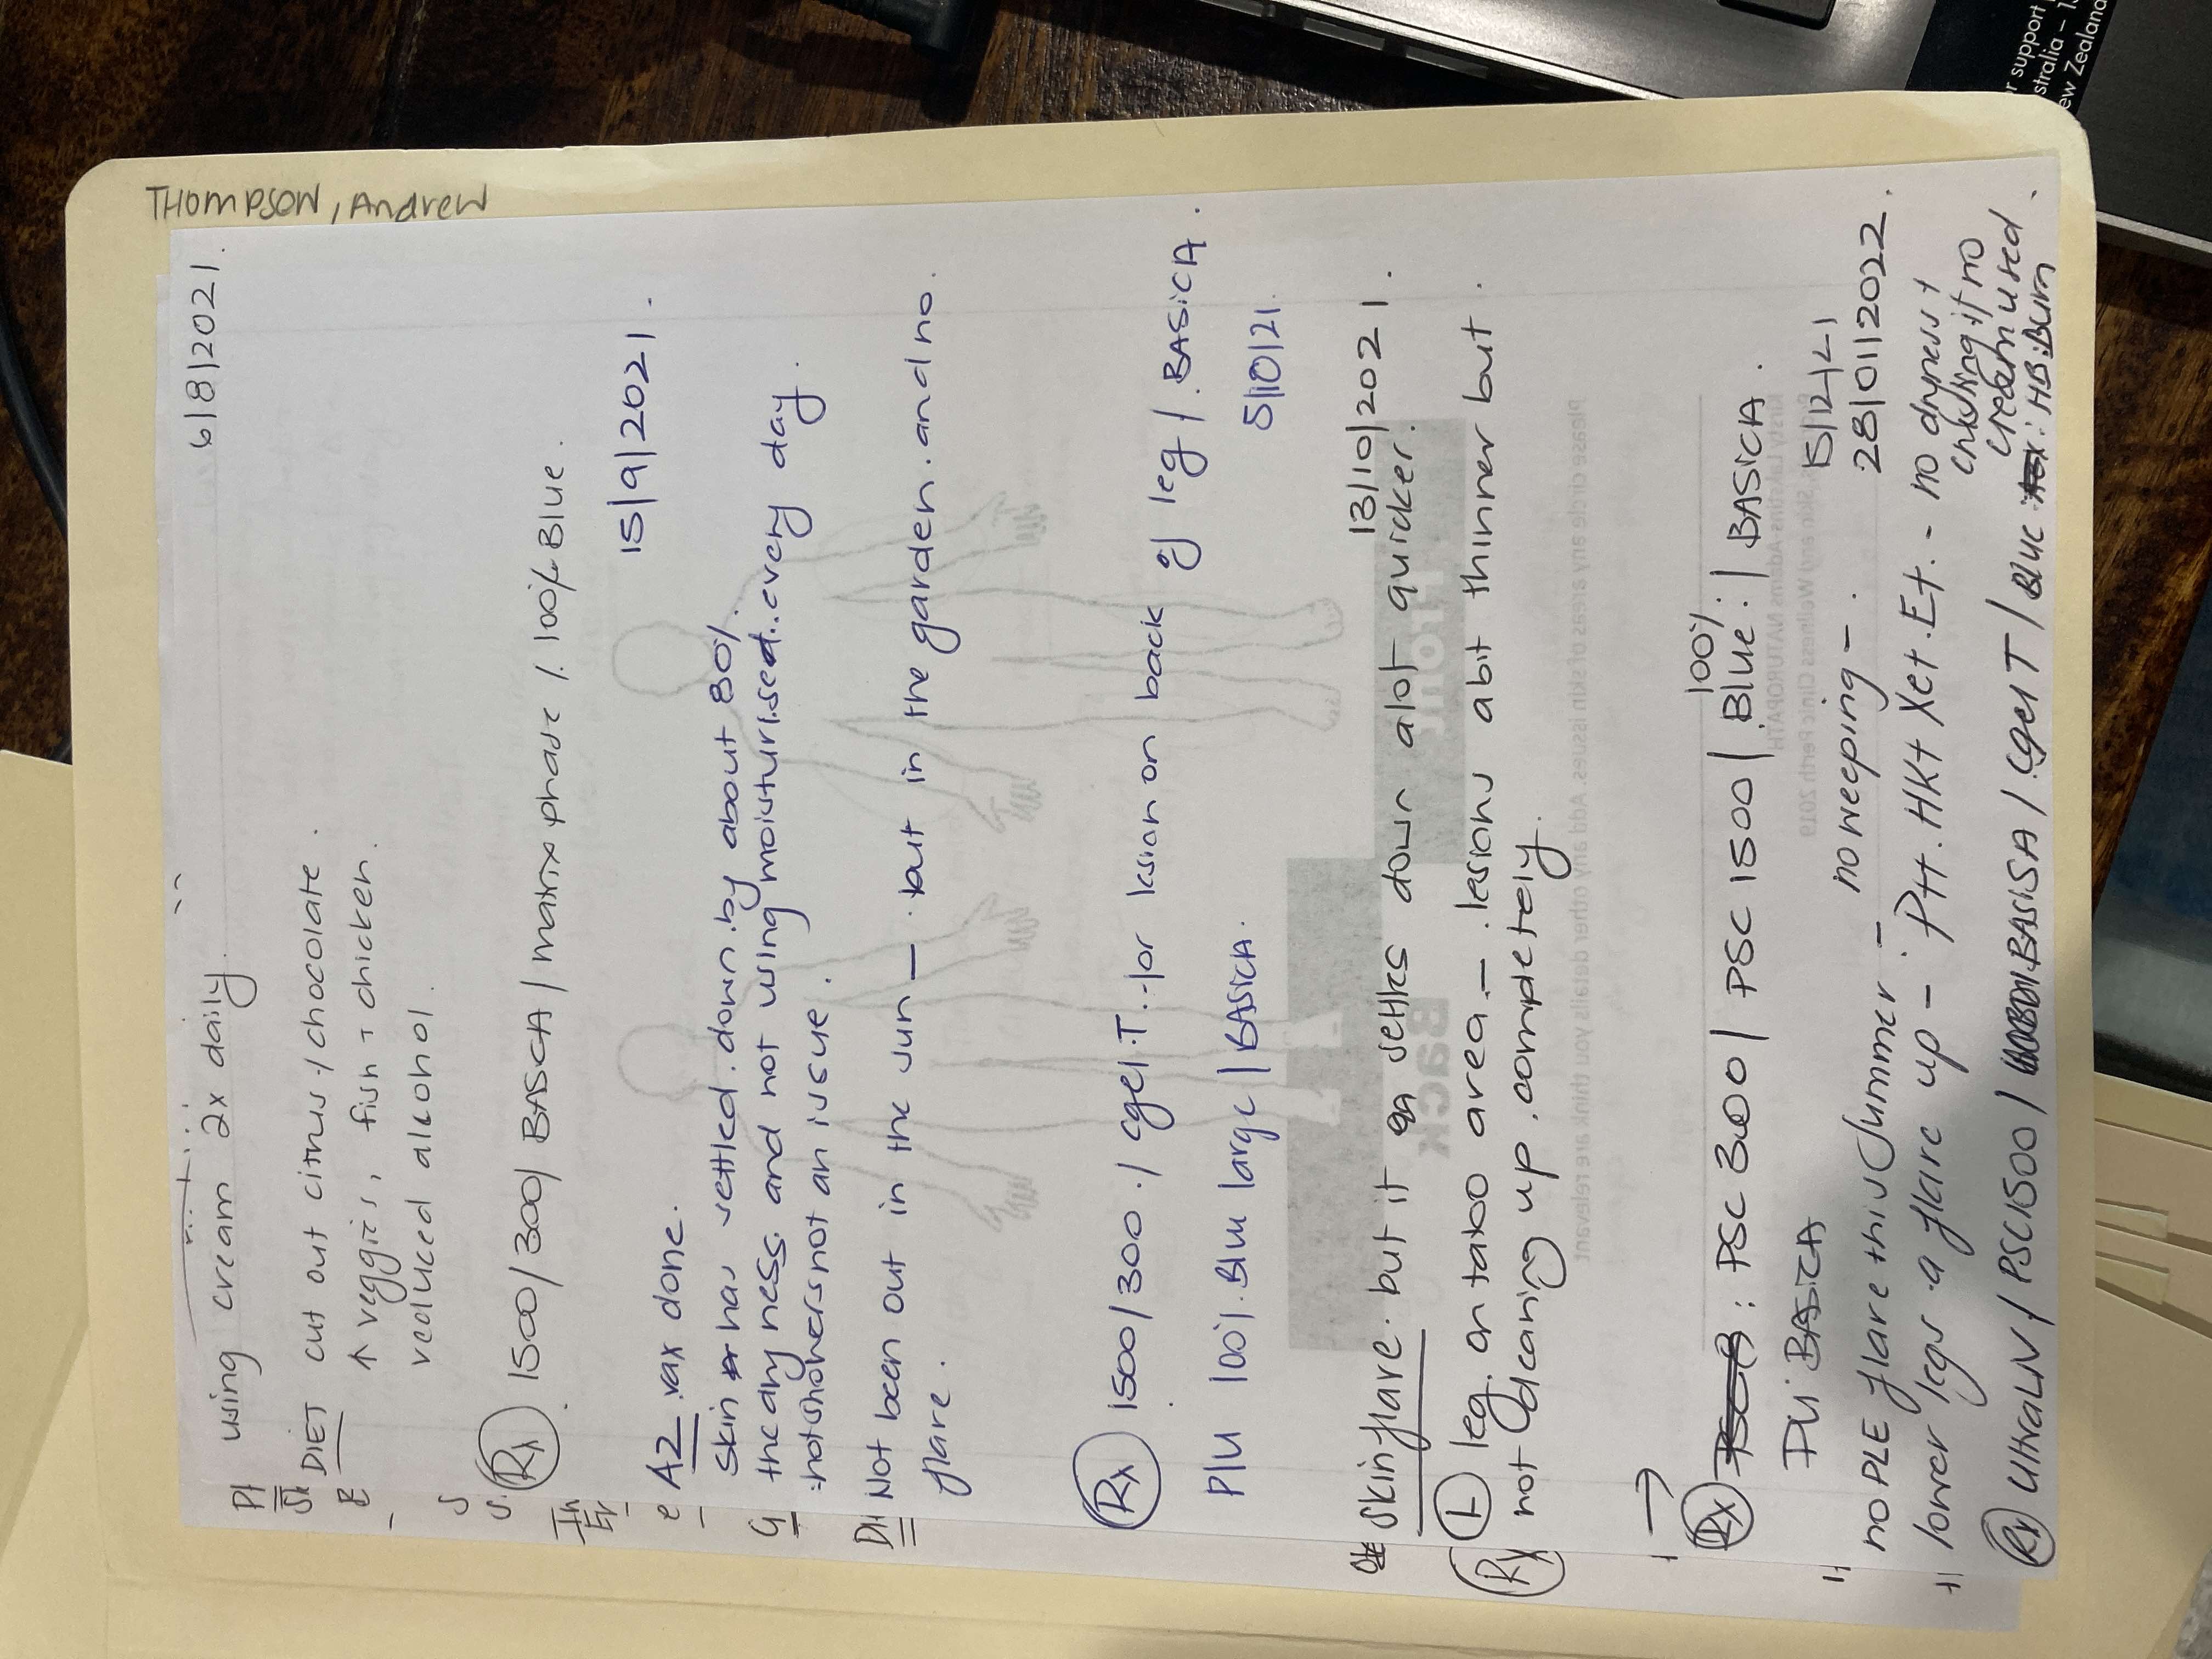 THOMPSON, Andrew
6/8/2021.
using cream 2x daily.
DIET cut out citrus / chocolate.
↑ veggies, fish + chicken.
reduced alcohol.
Rx 1500/300/ BASCA / matrix phase / 100% Blue.
15/9/2021.
A2 vax done.
Skin has settled. down. by about 80%.
the dryness. and not using moisturised. every day.
hot showers not an issue.
Not been out in the sun — but in the garden. and no.
flare.
Rx 1500/300. / cgel.T. for lesion on back of leg /. BASICA.
P/U 100%. Blue large / BASICA. 5/10/21.
13/10/2021.
Skin flare. but it settles down alot quicker.
L leg. on taboo area. - lesions abit thinner but.
not cleaning up. completely.
Rx : PSC 300 / PSC 1500 / 100% Blue: / BASICA.
PU BASICA 15/12/21
no weeping - . 28/01/2022.
no PLE flare this summer -
lower legs a flare up - . PH. HK+ Xet. Et. - no dryness +
itching if no
cream used.
Rx UltraLIV / PSC1500 / BASISA / CgelT / Blue : HB: Burn
Front
Back
Please circle any areas of skin issues. Add any other details you think are relevant
Skin and Wellness Clinic Perth 2019
NATUROPATH
r support
stralia – 13
ew Zealand